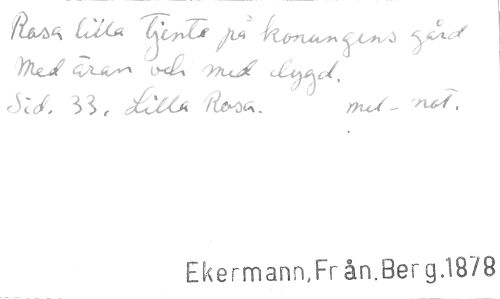 Rosa lilla tjente på konungens gård
Med äran och med dygd.
Sid. 33. Lilla Rosa. mel-not.
Ekermann,Från.Berg.1878